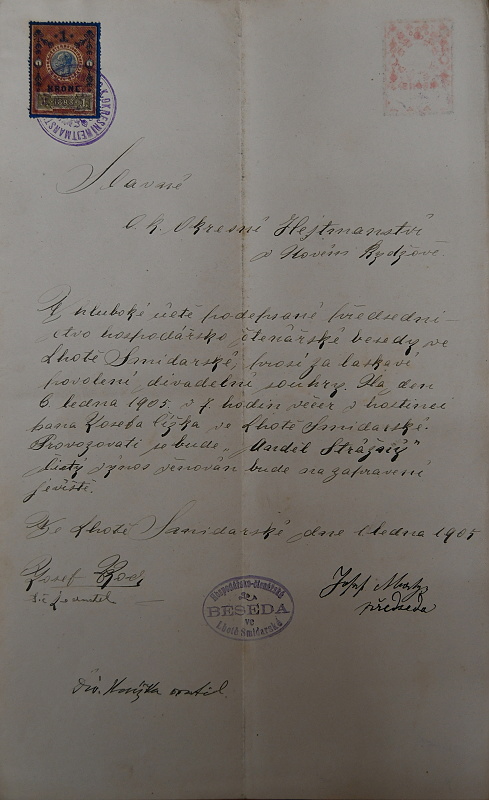 1
KRONE
C.K. OKRESNÍ HEJTMANSTVÍ
Slavné
C. k. Okresní Hejtmanství
v Novém Bydžově.
V hluboké úctě podepsané předsedni-
ctvo hospodářsko čtenářské besedy ve
Lhotě Smidarské, prosí za laskavé
povolení divadelní souhry. Na den
6 ledna 1905. v 7. hodin večer v hostinci
pana Josefa Čížka ve Lhotě Smidarské.
Provozovati se bude „
Čistý výnos věnován bude na zapravení
jeviště.
Ve Lhotě Smidarské dne 1 ledna 1905
Josef
t. č. Jednatel
Hospodářsko-čtenářská
BESEDA
ve
Lhotě Smidarské
Josef
předseda
Div. knížka vrátil.